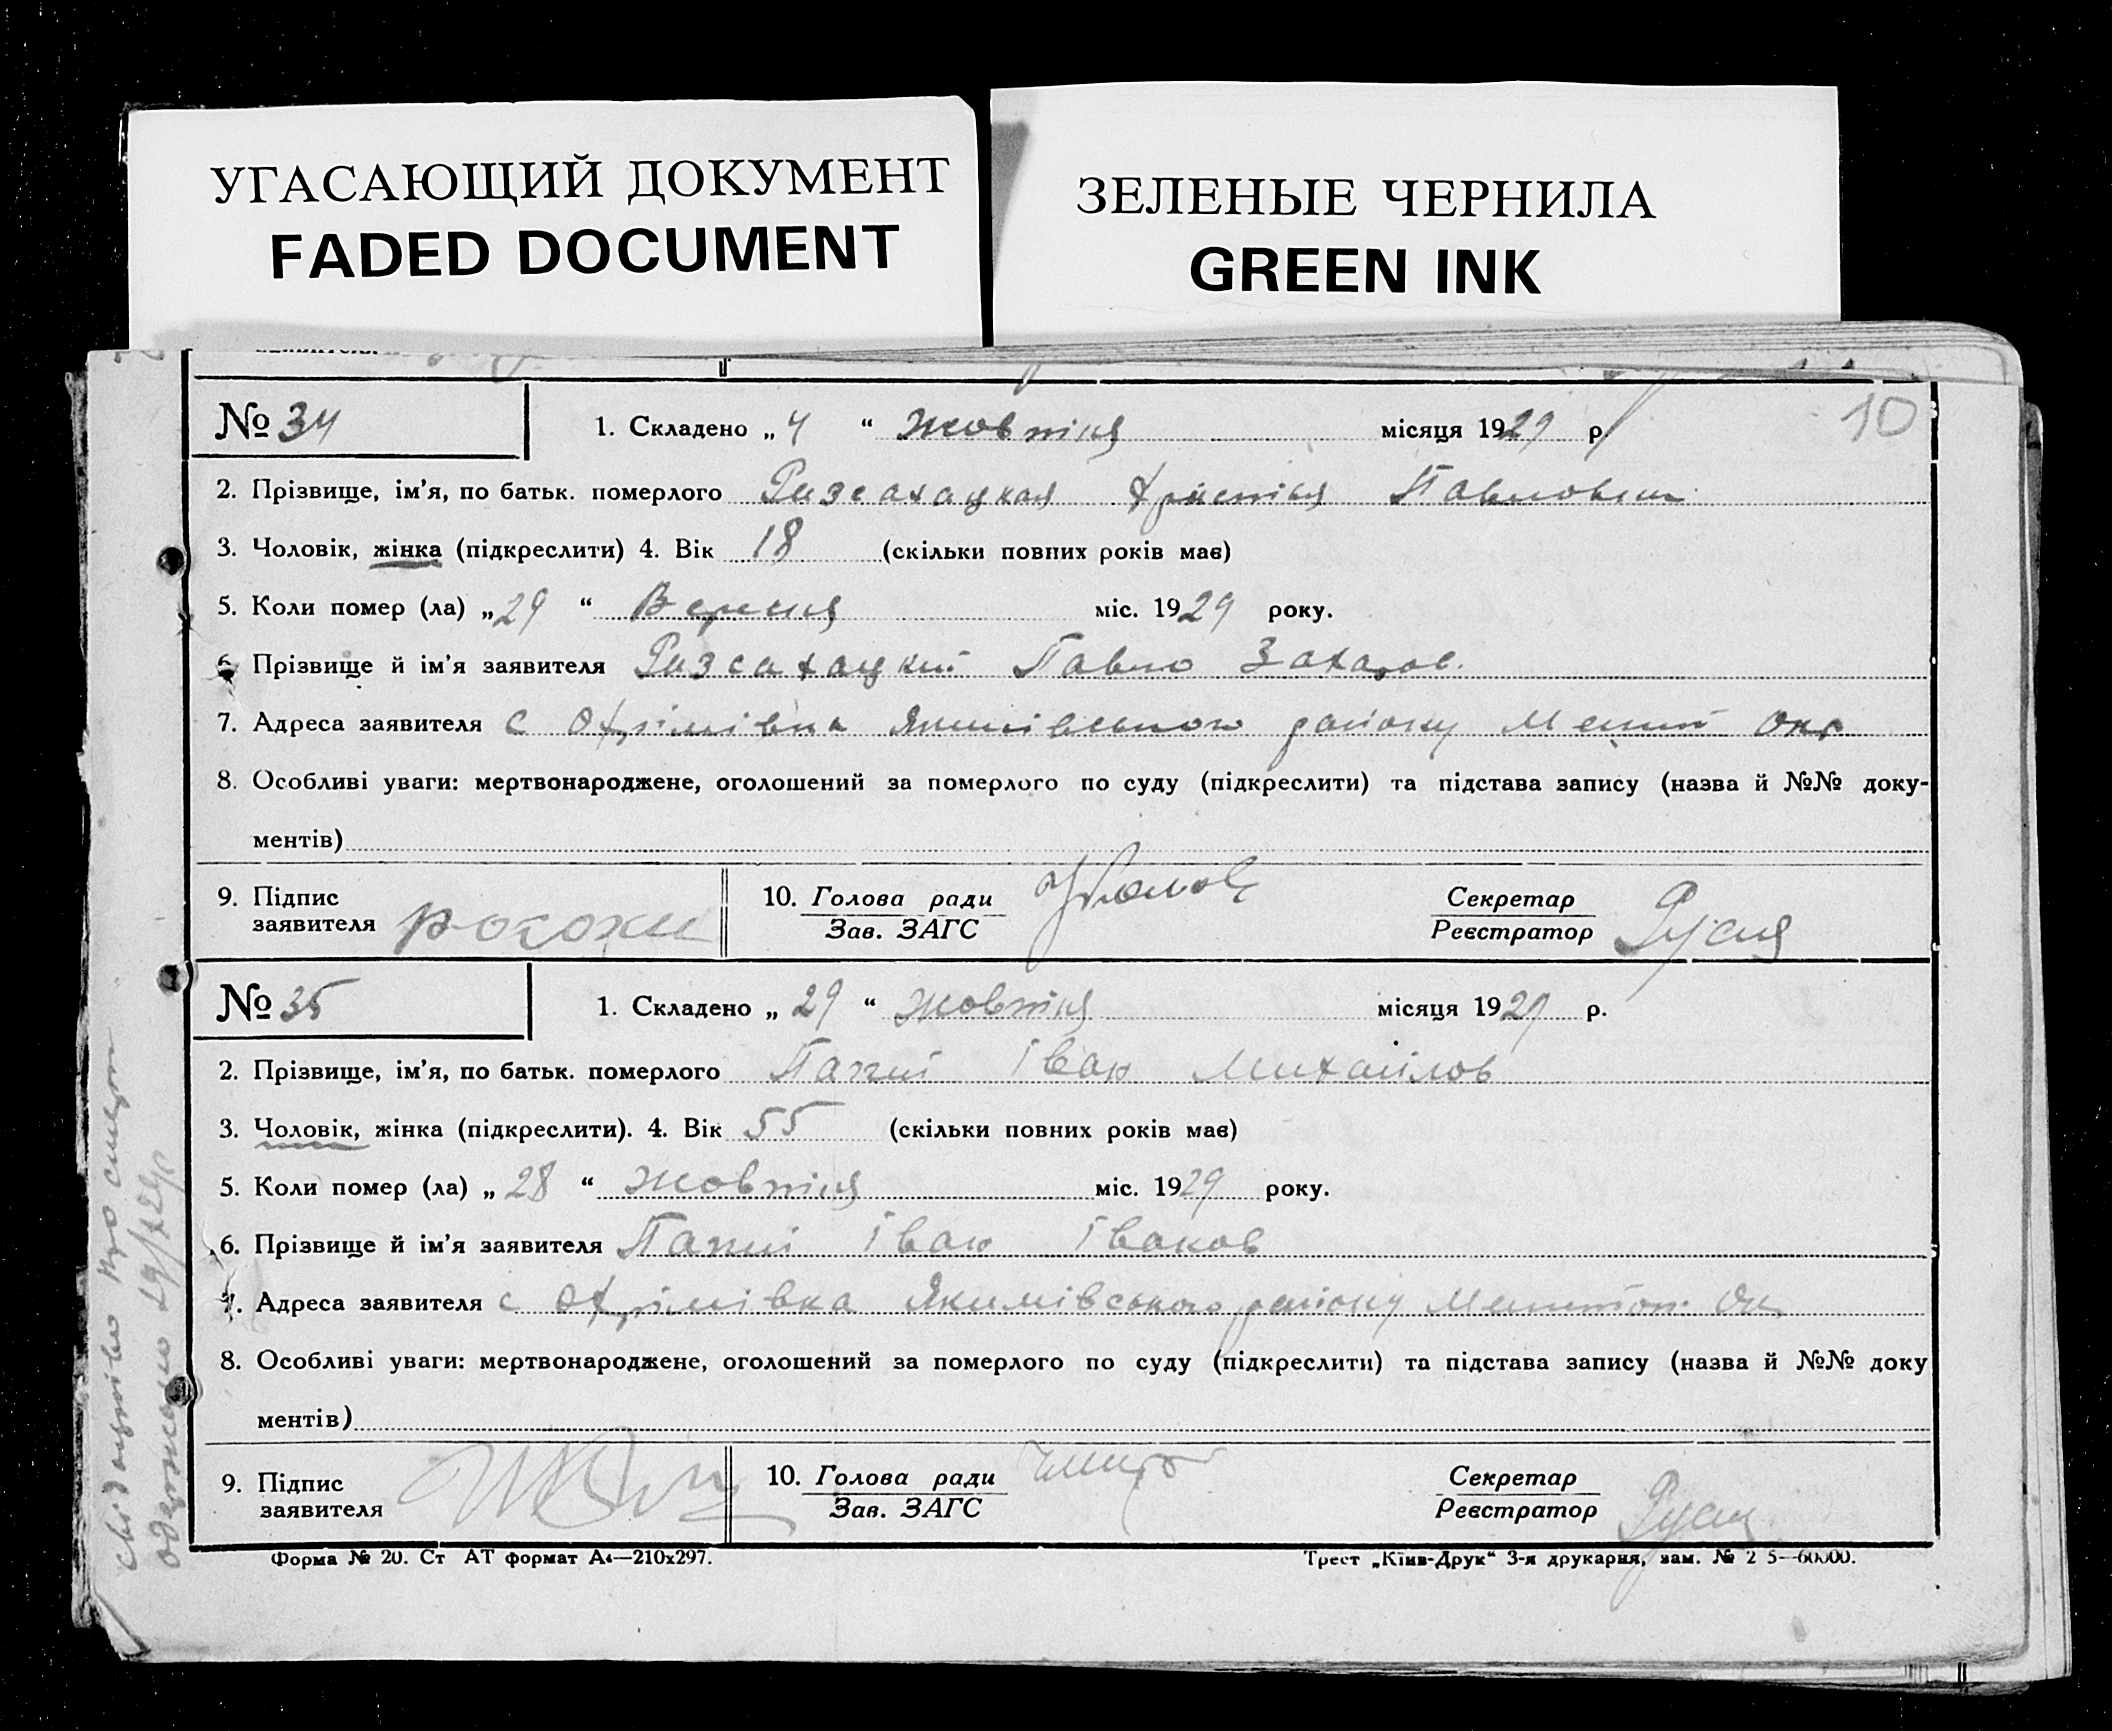 УГАСАЮЩИЙ ДОКУМЕНТ
FADED DOCUMENT
ЗЕЛЕНЫЕ ЧЕРНИЛА
GREEN INK
10
№ 34 1. Складено „ 4 “ Жовтня місяця 1929 р.
2. Прізвище, ім’я, по батьк. померлого Павловна
3. Чоловік, жінка (підкреслити) 4. Вік 18 (скільки повних років має)
5. Коли помер (ла) „ 29 “ Вересня міс. 1929 року.
6. Прізвище й ім’я заявителя Павло Захаров.
7. Адреса заявителя с Охрімівка Якимівського району Окр
8. Особливі уваги: мертвонароджене, оголошений за померлого по суду (підкреслити) та підстава запису (назва й №№ доку-
ментів)
9. Підпис заявителя 10. Голова ради Зав. ЗАГС Секретар Реєстратор
№ 35 1. Складено „ 29 “ Жовтня місяця 1929 р.
2. Прізвище, ім’я, по батьк. померлого Іван Михайлов
3. Чоловік, жінка (підкреслити). 4. Вік 55 (скільки повних років має)
5. Коли помер (ла) „ 28 “ Жовтня міс. 1929 року.
6. Прізвище й ім’я заявителя Іван Іванов
7. Адреса заявителя с Охрімівка Якимівського району Мелітоп. Ок
8. Особливі уваги: мертвонароджене, оголошений за померлого по суду (підкреслити) та підстава запису (назва й №№ доку
ментів)
9. Підпис заявителя 10. Голова ради Зав. ЗАГС Секретар Реєстратор
Форма № 20. Ст АТ формат А4—210х297.
Трест „Київ-Друк“ 3-я друкарня, зам. № 2 5—60000.
про смерть
одержано